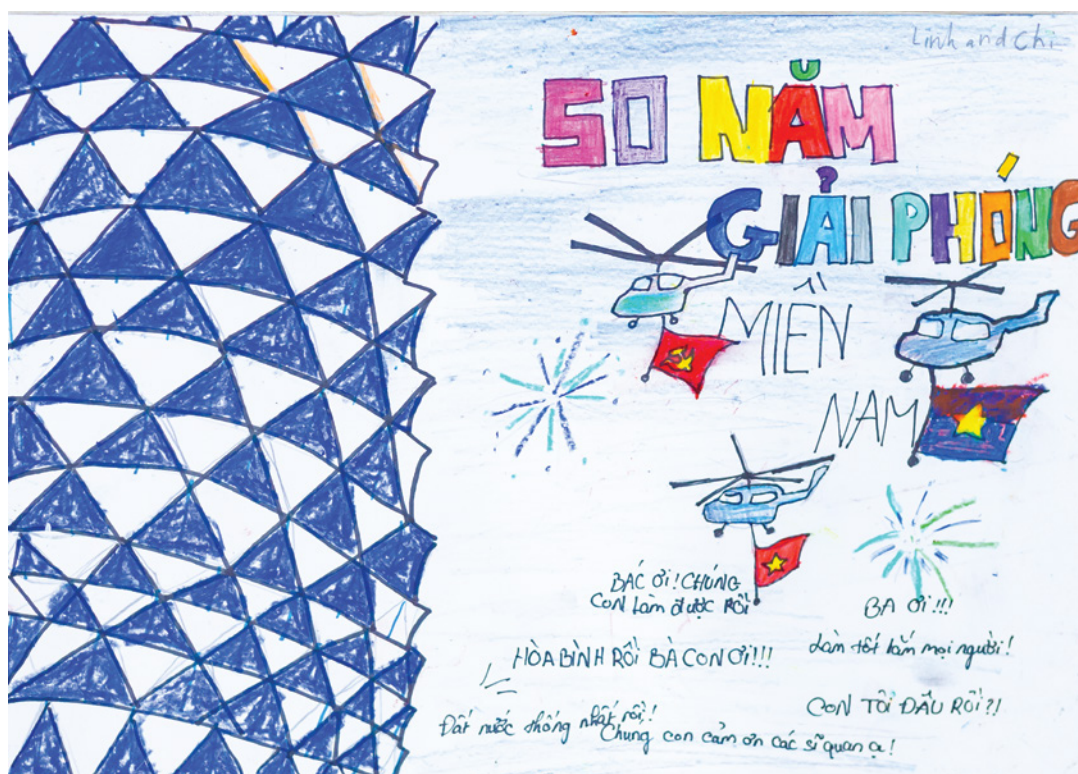 Linh and Chi
50 NĂM
GIẢI PHÓNG
MIỀN
NAM
BÁC ƠI! CHÚNG
CON LÀM ĐƯỢC RỒI
BA ƠI!!!
Làm tốt lắm mọi người!
HÒA BÌNH RỒI BÀ CON ƠI!!!
CON TÔI ĐÂU RỒI?!
Đất nước thống nhất rồi!
Chúng con cảm ơn các sĩ quan ạ!